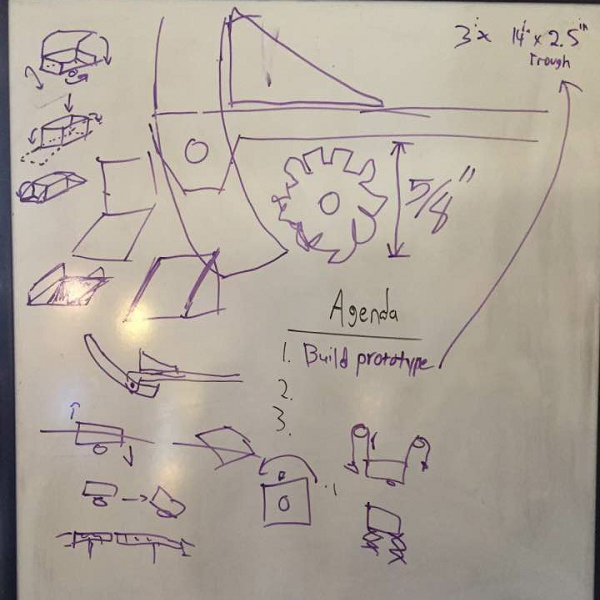 3" x 14" x 2.5"
Trough
5/8"
Agenda
1. Build prototype
2.
3.